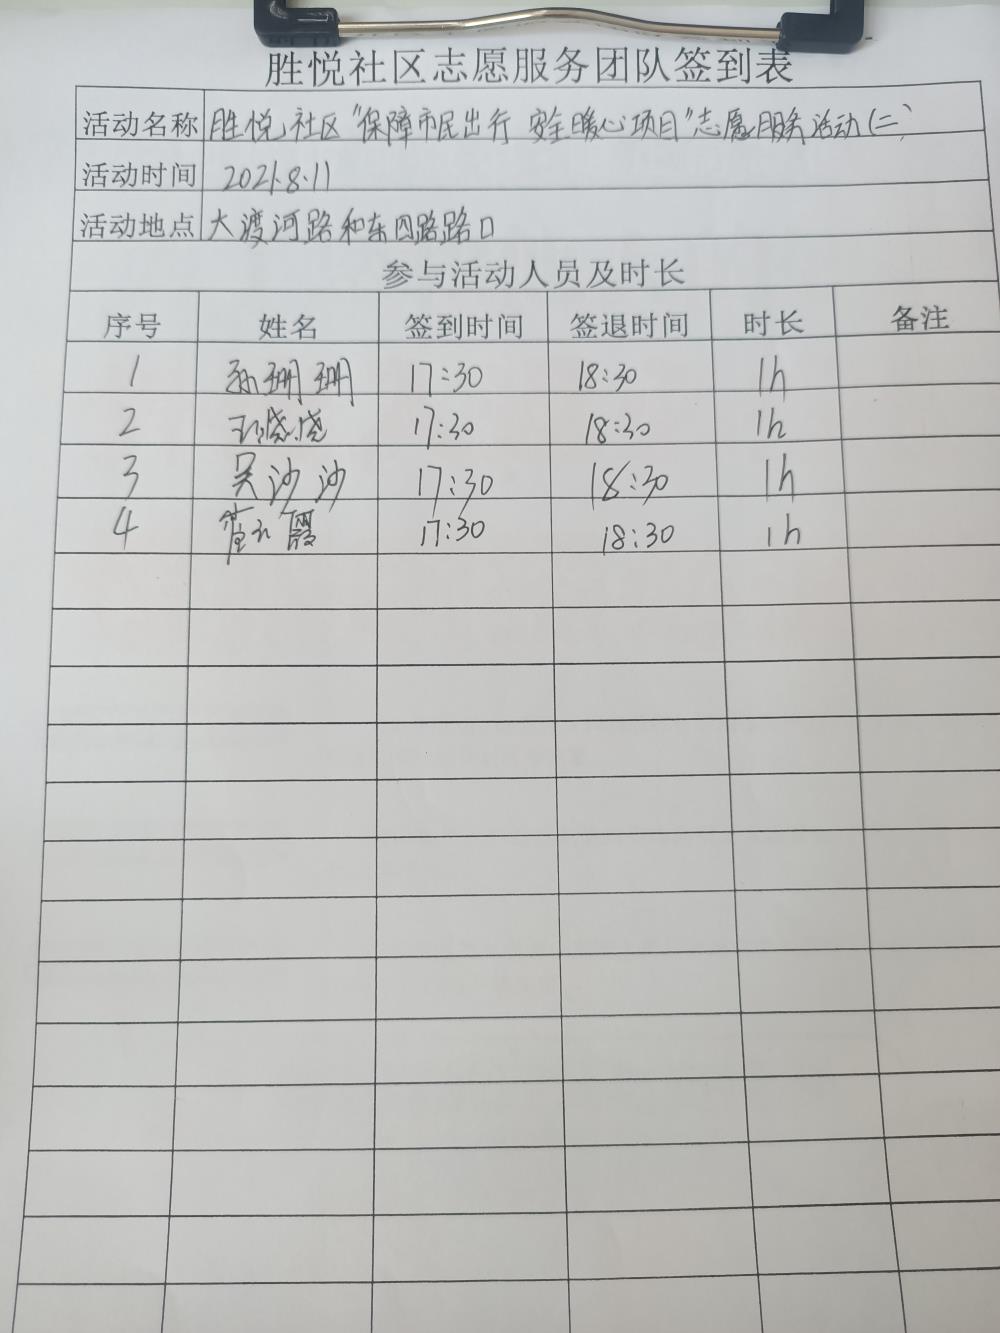 胜悦社区志愿服务团队签到表
活动名称 胜悦社区“保障市民出行 安全暖心项目”志愿服务活动(二)
活动时间 2021.8.11
活动地点 大渡河路和东四路路口
参与活动人员及时长
序号 姓名 签到时间 签退时间 时长 备注
1 孙珊珊 17:30 18:30 1h
2 王晓晓 17:30 18:30 1h
3 吴沙沙 17:30 18:30 1h
4 17:30 18:30 1h